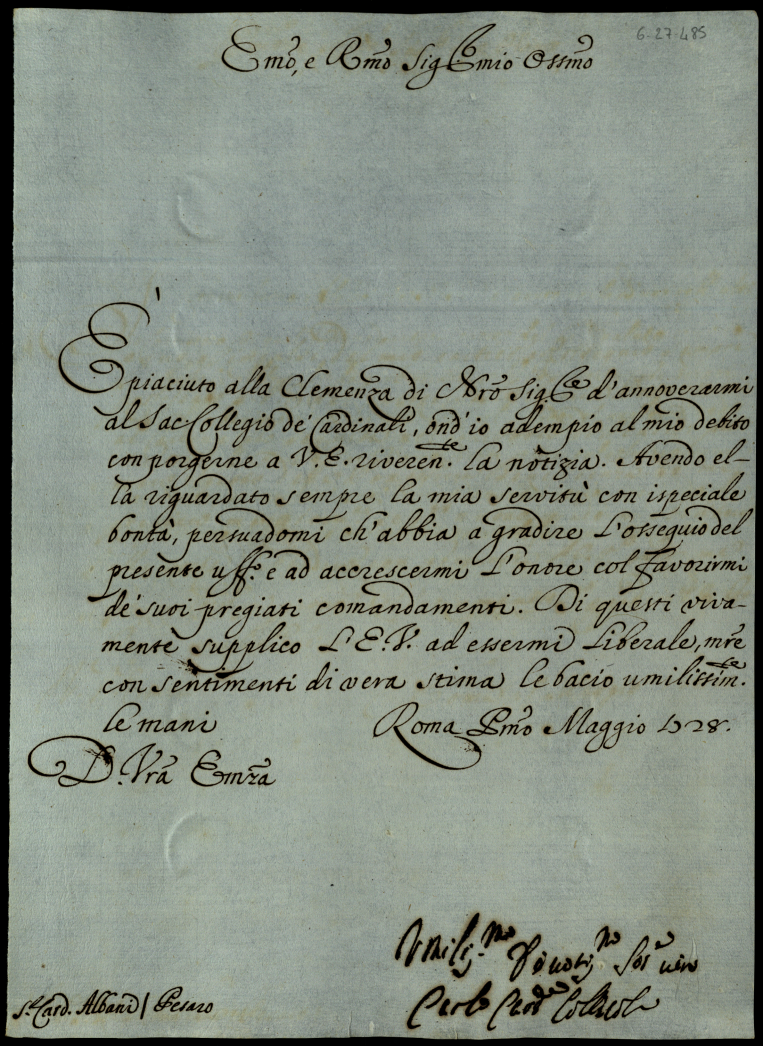 6-27-485
Emo, e Rmo Sig.re mio Ossmo
È piaciuto alla Clemenza di Nrõ Sig.re d'annoverarmi
al Sac. Collegio de' Cardinali, ond'io adempio al mio debito
con porgerne a V. E. riveren.te la notizia. Avendo el-
la riguardato sempre la mia servitù con ispeciale
bontà, persuadomi ch'abbia a gradire l'ossequio del
presente uff.o e ad accrescermi l'onore col favorirmi
de' suoi pregiati comandamenti. Di questi viva-
mente supplico l'E. V. ad essermi liberale, mrẽ
con sentimenti di vera stima le bacio umilissim.te
le mani Roma Pmo Maggio 1728.
D. Vrã Emza
Umilis.mo Divotis.mo Ser.e vero
Carlo Card.
S.r Card. Albani / Pesaro